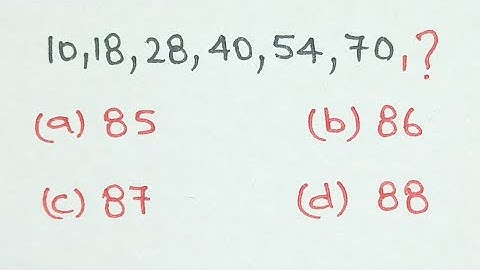 10,18,28,40,54,70,?
(a) 85 (b) 86
(c) 87 (d) 88